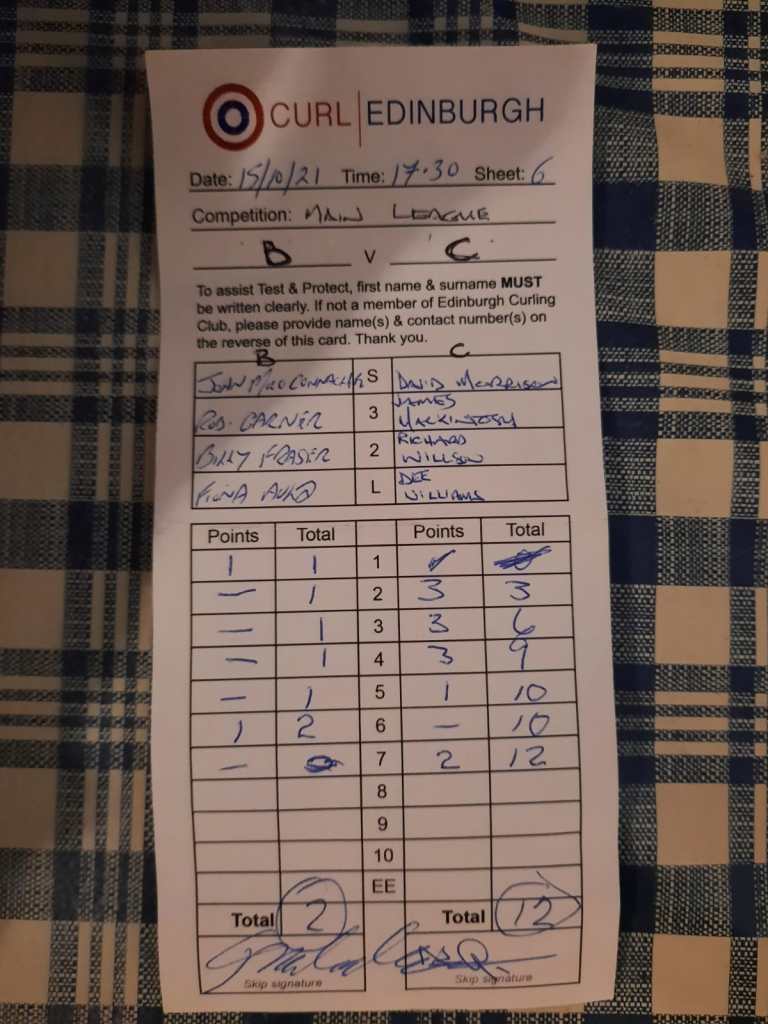 CURL | EDINBURGH
Date: 15/10/21 Time: 17.30 Sheet: 6
Competition: MAIN LEAGUE
B v C
To assist Test & Protect, first name & surname MUST
be written clearly. If not a member of Edinburgh Curling
Club, please provide name(s) & contact number(s) on
the reverse of this card. Thank you.
B C
JOHN S DAVID MORRISON
ROB. GARNER 3 JAMES MACKINTOSH
BILLY FRASER 2 RICHARD WILLSON
FIONA L DEE WILLIAMS
Points Total Points Total
1 1 1
— 1 2 3 3
— 1 3 3 6
— 1 4 3 9
— 1 5 1 10
1 2 6 — 10
— 7 2 12
8
9
10
EE
Total 2 Total 12
Skip signature Skip signature